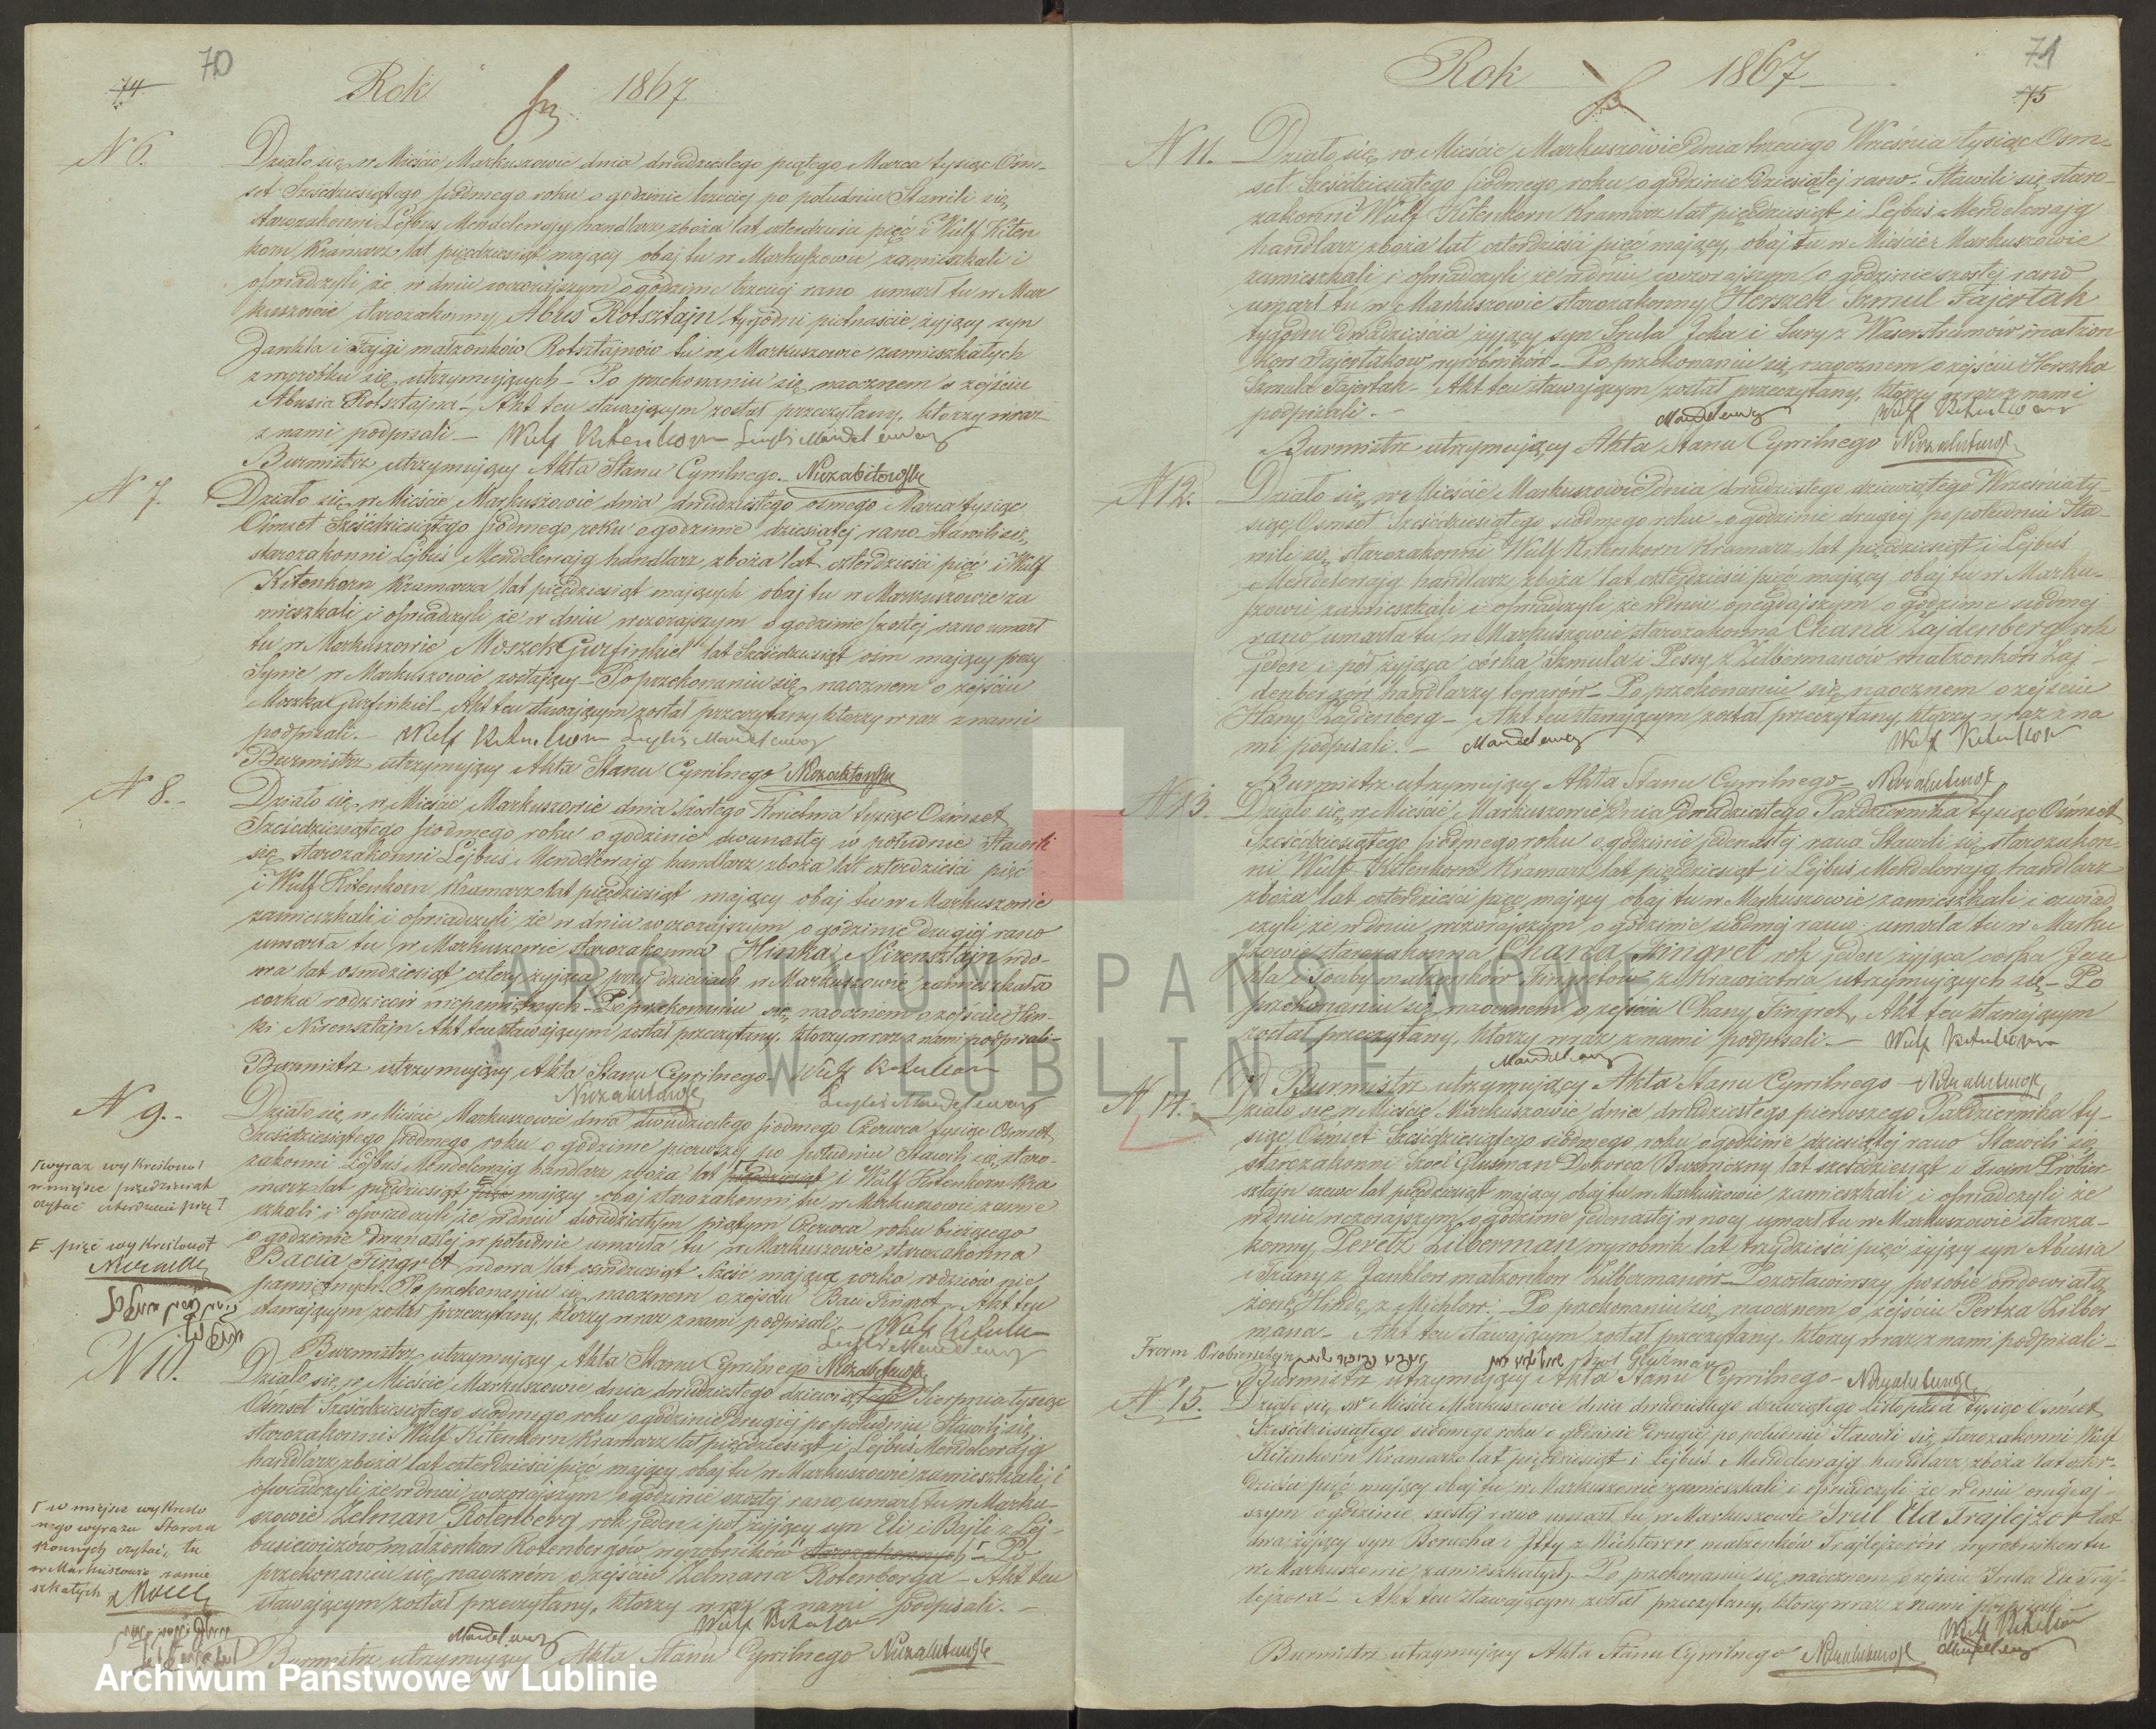 70
14
Rok 1867
N 6.
Działo się w Mieście Markuszowie dnia dwudziestego piątego Marca tysiąc Ośm-
set Sześćdziesiątego siódmego roku o godzinie trzeciej po południu Stawili się
starozakonni Lejbuś Mendelewajg handlarz zboża lat czterdzieści pięć i Wulf Kiten
korn Kramarz lat pięćdziesiąt mający obaj tu w Markuszowie zamieszkali i
oświadczyli że w dniu wczorajszym o godzinie trzeciej rano umarł tu w Mar
kuszowie starozakonny Abus Rotsztajn tygodni pietnaście żyjący syn
Jankla i Fajgi małżonków Rotsztajnów tu w Markuszowie zamieszkałych
z wyrobku się utrzymujących – Po przekonaniu się naocznem o zejściu
Abusia Rotsztajna – Akt ten stawającym został przeczytany, którzy wraz
z nami podpisali –
Burmistrz utrzymujący Akta Stanu Cywilnego.
N 7.
Działo się w Mieście Markuszowie dnia dwudziestego osmego Marca tysiąc
Ośmset Sześćdziesiątego siódmego roku o godzinie dziesiątej rano Stawili się
starozakonni Lejbuś Mendelewajg handlarz zboża lat czterdzieści pięć i Wulf
Kitenkorn Kramarz lat pięćdziesiąt mających obaj tu w Markuszowie za
mieszkali i oświadczyli że w dniu wczorajszym o godzinie szostej rano umarł
tu w Markuszowie Moszek Gurfinkiel lat Sześćdziesiąt ośm mający przy
Synie w Markuszowie zostający – Po przekonaniu się naocznem o zejściu
Moszka Gurfinkiel – Akt ten stawającym został przeczytany którzy wraz z nami
podpisali. –
Burmistrz utrzymujący Akta Stanu Cywilnego
N 8. –
Działo się w Mieście Markuszowie dnia szostego Kwietnia tysiąc Ośmset
Sześćdziesiątego siódmego roku o godzinie dwunastej w południe Stawili
się starozakonni Lejbuś Mendelewajg handlarz zboża lat czterdzieści pięć
i Wulf Kitenkorn Kramarz lat pięćdziesiąt mający obaj tu w Markuszowie
zamieszkali i oświadczyli że w dniu wczorajszym o godzinie drugiej rano
umarła tu w Markuszowie starozakonna Hinka Nirensztajn wdo-
wa lat osmdziesiąt cztery żyjąca przy dzieciach w Markuszowie zamieszkała
córka rodziców niepamiętnych – Po przekonaniu się naocznem o zejściu Hin-
ki Nirensztajn Akt ten stawającym został przeczytany, którzy wraz z nami podpisali –
Burmistrz utrzymujący Akta Stanu Cywilnego
N 9. –
Działo się w Mieście Markuszowie dnia dwudziestego siódmego Czerwca tysiąc Ośmset
Sześćdziesiątego siódmego roku o godzinie pierwszej po południu Stawili się staro-
zakonni Lejbuś Mendelewajg handlarz zboża lat pięćdziesiąt i Wulf Kitenkorn Kra
marz lat pięćdziesiąt pięć mający obaj starozakonni tu w Markuszowie zamie
szkali i oświadczyli że w dniu dwudziestym piątym Czerwca roku bieżącego
o godzinie dwunastej w południe umarła tu w Markuszowie starozakonna
Bacia Fingret wdowa lat osmdziesiąt sześć mająca córka rodziców nie
pamiętnych – Po przekonaniu się naocznem o zejściu Baci Fingret – Akt ten
stawającym został przeczytany, którzy wraz z nami podpisali –
Burmistrz utrzymujący Akta Stanu Cywilnego
wyraz wykreślony
w miejsce pięćdziesiąt
czytać czterdzieści pięć
pięć wykreślono
N 10.
Działo się w Mieście Markuszowie dnia dwudziestego dziewiątego Sierpnia tysiąc
Ośmset Sześćdziesiątego siódmego roku o godzinie drugiej po południu Stawili się
starozakonni Wulf Kitenkorn Kramarz lat pięćdziesiąt i Lejbuś Mendelewajg
handlarz zboża lat czterdzieści pięć mający obaj tu w Markuszowie zamieszkali i
oświadczyli że w dniu wczorajszym o godzinie szostej rano umarł tu w Marku-
szowie Zelman Rotenberg rok jeden i pół żyjący syn Eli i Bajli z Lej-
busiewiczów małżonków Rotenbergów wyrobników starozakonnych – Po
przekonaniu się naocznem o zejściu Zelmana Rotenberga – Akt ten
stawającym został przeczytany, którzy wraz z nami podpisali. –
Burmistrz utrzymujący Akta Stanu Cywilnego
w miejsce wykreślo
nego wyrazu Staroza
konnych czytać, tu
w Markuszowie zamie
szkałych
71
15
Rok 1867
N 11.
Działo się w Mieście Markuszowie dnia trzeciego Września tysiąc Osm-
set Sześćdziesiątego siódmego roku o godzinie dziesiątej rano. Stawili się staro-
zakonni Wulf Kitenkorn Kramarz lat pięćdziesiąt i Lejbuś Mendelewajg
handlarz zboża lat czterdzieści pięć mający, obaj tu w Mieście Markuszowie
zamieszkali i oświadczyli że w dniu wczorajszym o godzinie szostej rano
umarł tu w Markuszowie starozakonny Herszek Szmul Fajertak
tygodni dwadzieścia żyjący syn Srula Icka i Sury z Waserstrumów małżon
ków Fajertaków wyrobników – Po przekonaniu się naocznem o zejściu Herszka
Szmula Fajertak – Akt ten stawającym został przeczytany, którzy wraz z nami
podpisali. –
Burmistrz utrzymujący Akta Stanu Cywilnego
N 12.
Działo się w Mieście Markuszowie dnia dwudziestego dziewiątego Września ty-
siąc Osmset Sześćdziesiątego siódmego roku o godzinie drugiej po południu Sta-
wili się starozakonni Wulf Kitenkorn Kramarz lat pięćdziesiąt i Lejbuś
Mendelewajg handlarz zboża lat czterdzieści pięć mający obaj tu w Marku-
szowie zamieszkali i oświadczyli że w dniu onegdajszym o godzinie siódmej
rano umarła tu w Markuszowie starozakonna Chana Zajdenberg rok
jeden i pół żyjąca córka Szmula i Pessy z Zilbermanów małżonków Zaj-
denbergów handlarzy towarów – Po przekonaniu się naocznem o zejściu
Hany Zajdenberg – Akt ten stawającym został przeczytany, którzy wraz z na
mi podpisali. –
Burmistrz utrzymujący Akta Stanu Cywilnego –
N 13.
Działo się w Mieście Markuszowie dnia dwudziestego Października tysiąc Ośmset
Sześćdziesiątego siódmego roku o godzinie jedenastej rano Stawili się starozakon-
ni Wulf Kitenkorn Kramarz lat pięćdziesiąt i Lejbuś Mendelewajg handlarz
zboża lat czterdzieści pięć mający obaj tu w Markuszowie zamieszkali i oświad
czyli że w dniu wczorajszym o godzinie siódmej rano umarła tu w Marku
szowie starozakonna Chana Fingret rok jeden żyjąca córka
małżonków Fingretów z Krawiectwa utrzymujących się – Po
przekonaniu się naocznem o zejściu Chany Fingret, Akt ten stawającym
został przeczytany, którzy wraz z nami podpisali. –
Burmistrz utrzymujący Akta Stanu Cywilnego –
N 14. –
Działo się w Mieście Markuszowie dnia dwudziestego pierwszego Października ty-
siąc Ośmset Sześćdziesiątego siódmego roku o godzinie dziesiątej rano Stawili się
starozakonni Glusman Dozorca Bożniczny lat sześćdziesiąt i Froim Probier-
sztajn szewc lat pięćdziesiąt mający obaj tu w Markuszowie zamieszkali i oświadczyli że
w dniu wczorajszym o godzinie jedenastej w nocy umarł tu w Markuszowie staroza-
konny Peretz Zilberman wyrobnik lat trzydzieści pięć żyjący syn Abusia
z Janklów małżonków Zilbermanów – Pozostawiwszy po sobie owdowiałą
żonę Hindę z Michlów. – Po przekonaniu się naocznem o zejściu Pertza Zilber
mana – Akt ten stawającym został przeczytany którzy wraz z nami podpisali –
Burmistrz utrzymujący Akta Stanu Cywilnego –
N 15.
Działo się w Mieście Markuszowie dnia dwudziestego dziewiątego Listopada tysiąc Ośmset
Sześćdziesiątego siódmego roku o godzinie drugiej po południu Stawili się starozakonni Wulf
Kitenkorn Kramarz lat pięćdziesiąt i Lejbuś Mendelewajg handlarz zboża lat czter-
dzieści pięć mający obaj tu w Markuszowie zamieszkali i oświadczyli że w dniu onegdaj-
szym o godzinie szostej rano umarł tu w Markuszowie Srul Ela Trajlejzor lat
dwa żyjący syn Borucha i Itty z małżonków Trajlejzorów wyrobników tu
w Markuszowie zamieszkałych. – Po przekonaniu się naocznem o zejściu Srula Eli Traj-
lejzora – Akt ten stawającym został przeczytany, którzy wraz z nami podpisali
Burmistrz utrzymujący Akta Stanu Cywilnego
ARCHIWUM PAŃSTWOWE
W LUBLINIE
Archiwum Państwowe w Lublinie